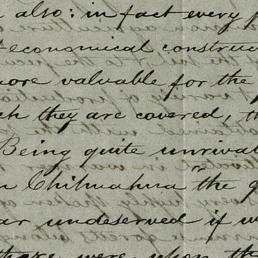 also: in fact every
economical construc
more valuable for the
they are covered, th
Being quite unrival
Chihuahua "the g
undeserved if w
were upon the